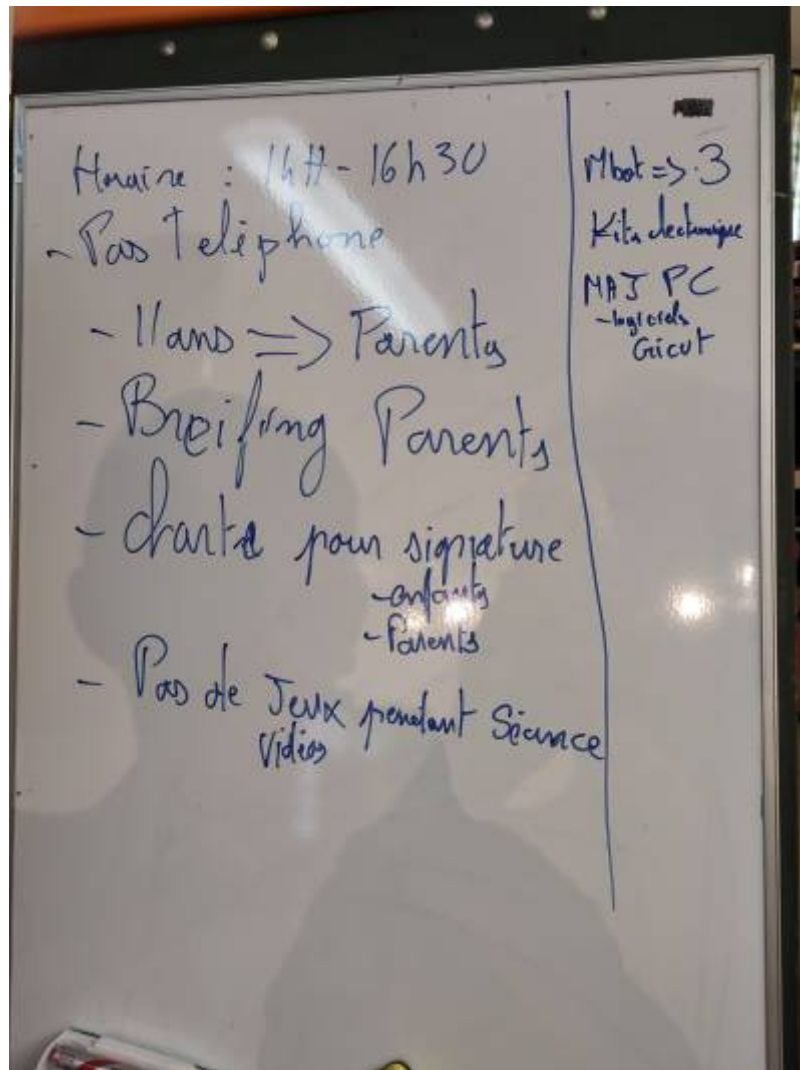 Horaire : 14H - 16h30
- Pas Téléphone
- 11ans => Parents
- Breifing Parents
- charte pour signature
- enfants
- Parents
- Pas de Jeux pendant Séance
Vidéos
Mbot => 3
Kits électronique
MAJ PC
- logiciels